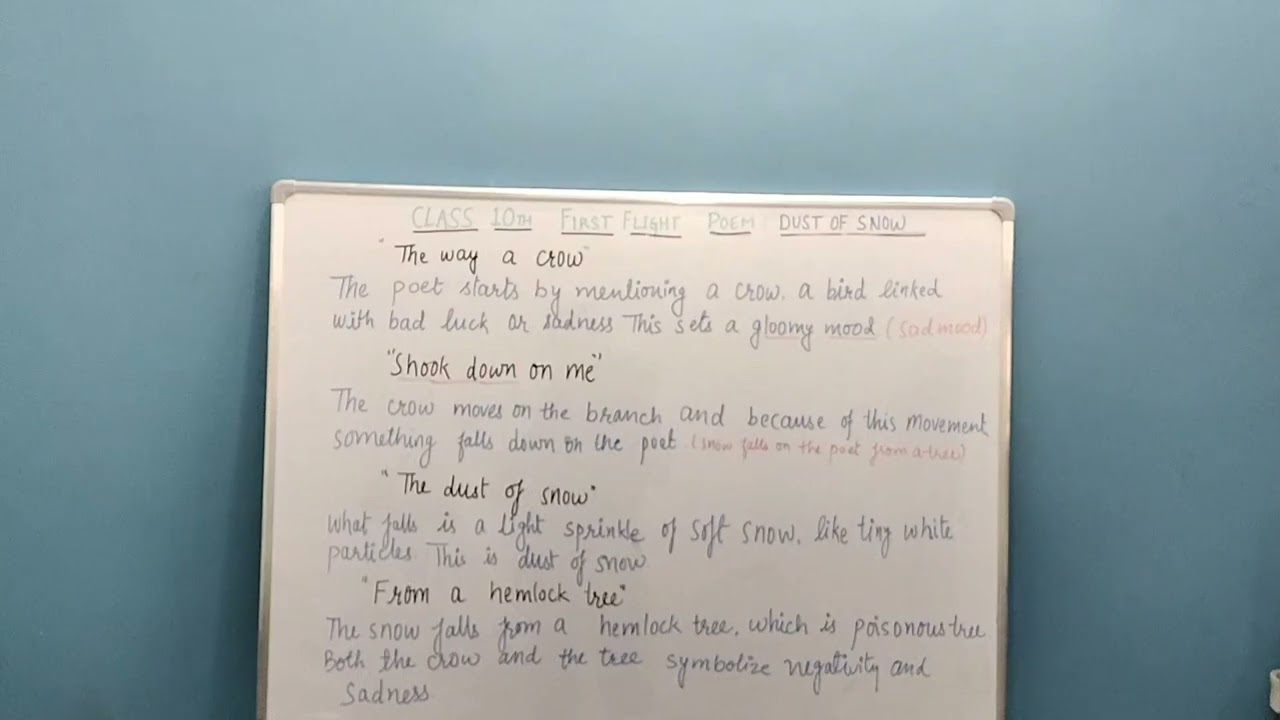 CLASS 10TH FIRST FLIGHT POEM DUST OF SNOW
"The way a crow"
The poet starts by mentioning a crow, a bird linked
with bad luck or sadness This sets a gloomy mood (sad mood)
"Shook down on me"
The crow moves on the branch and because of this movement
something falls down on the poet (snow falls on the poet from a tree)
"The dust of snow"
What falls is a light sprinkle of soft snow, like tiny white
particles. This is dust of snow
"From a hemlock tree"
The snow falls from a hemlock tree, which is poisonous tree
Both the crow and the tree symbolize negativity and
Sadness